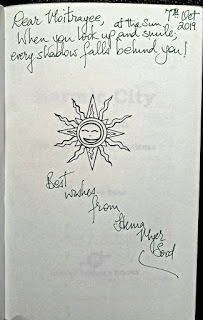 Dear Moitrayee, 7th Oct
2019
When you look up at the Sun and smile;
every shadow falls behind you!
Best
wishes
from
Hema